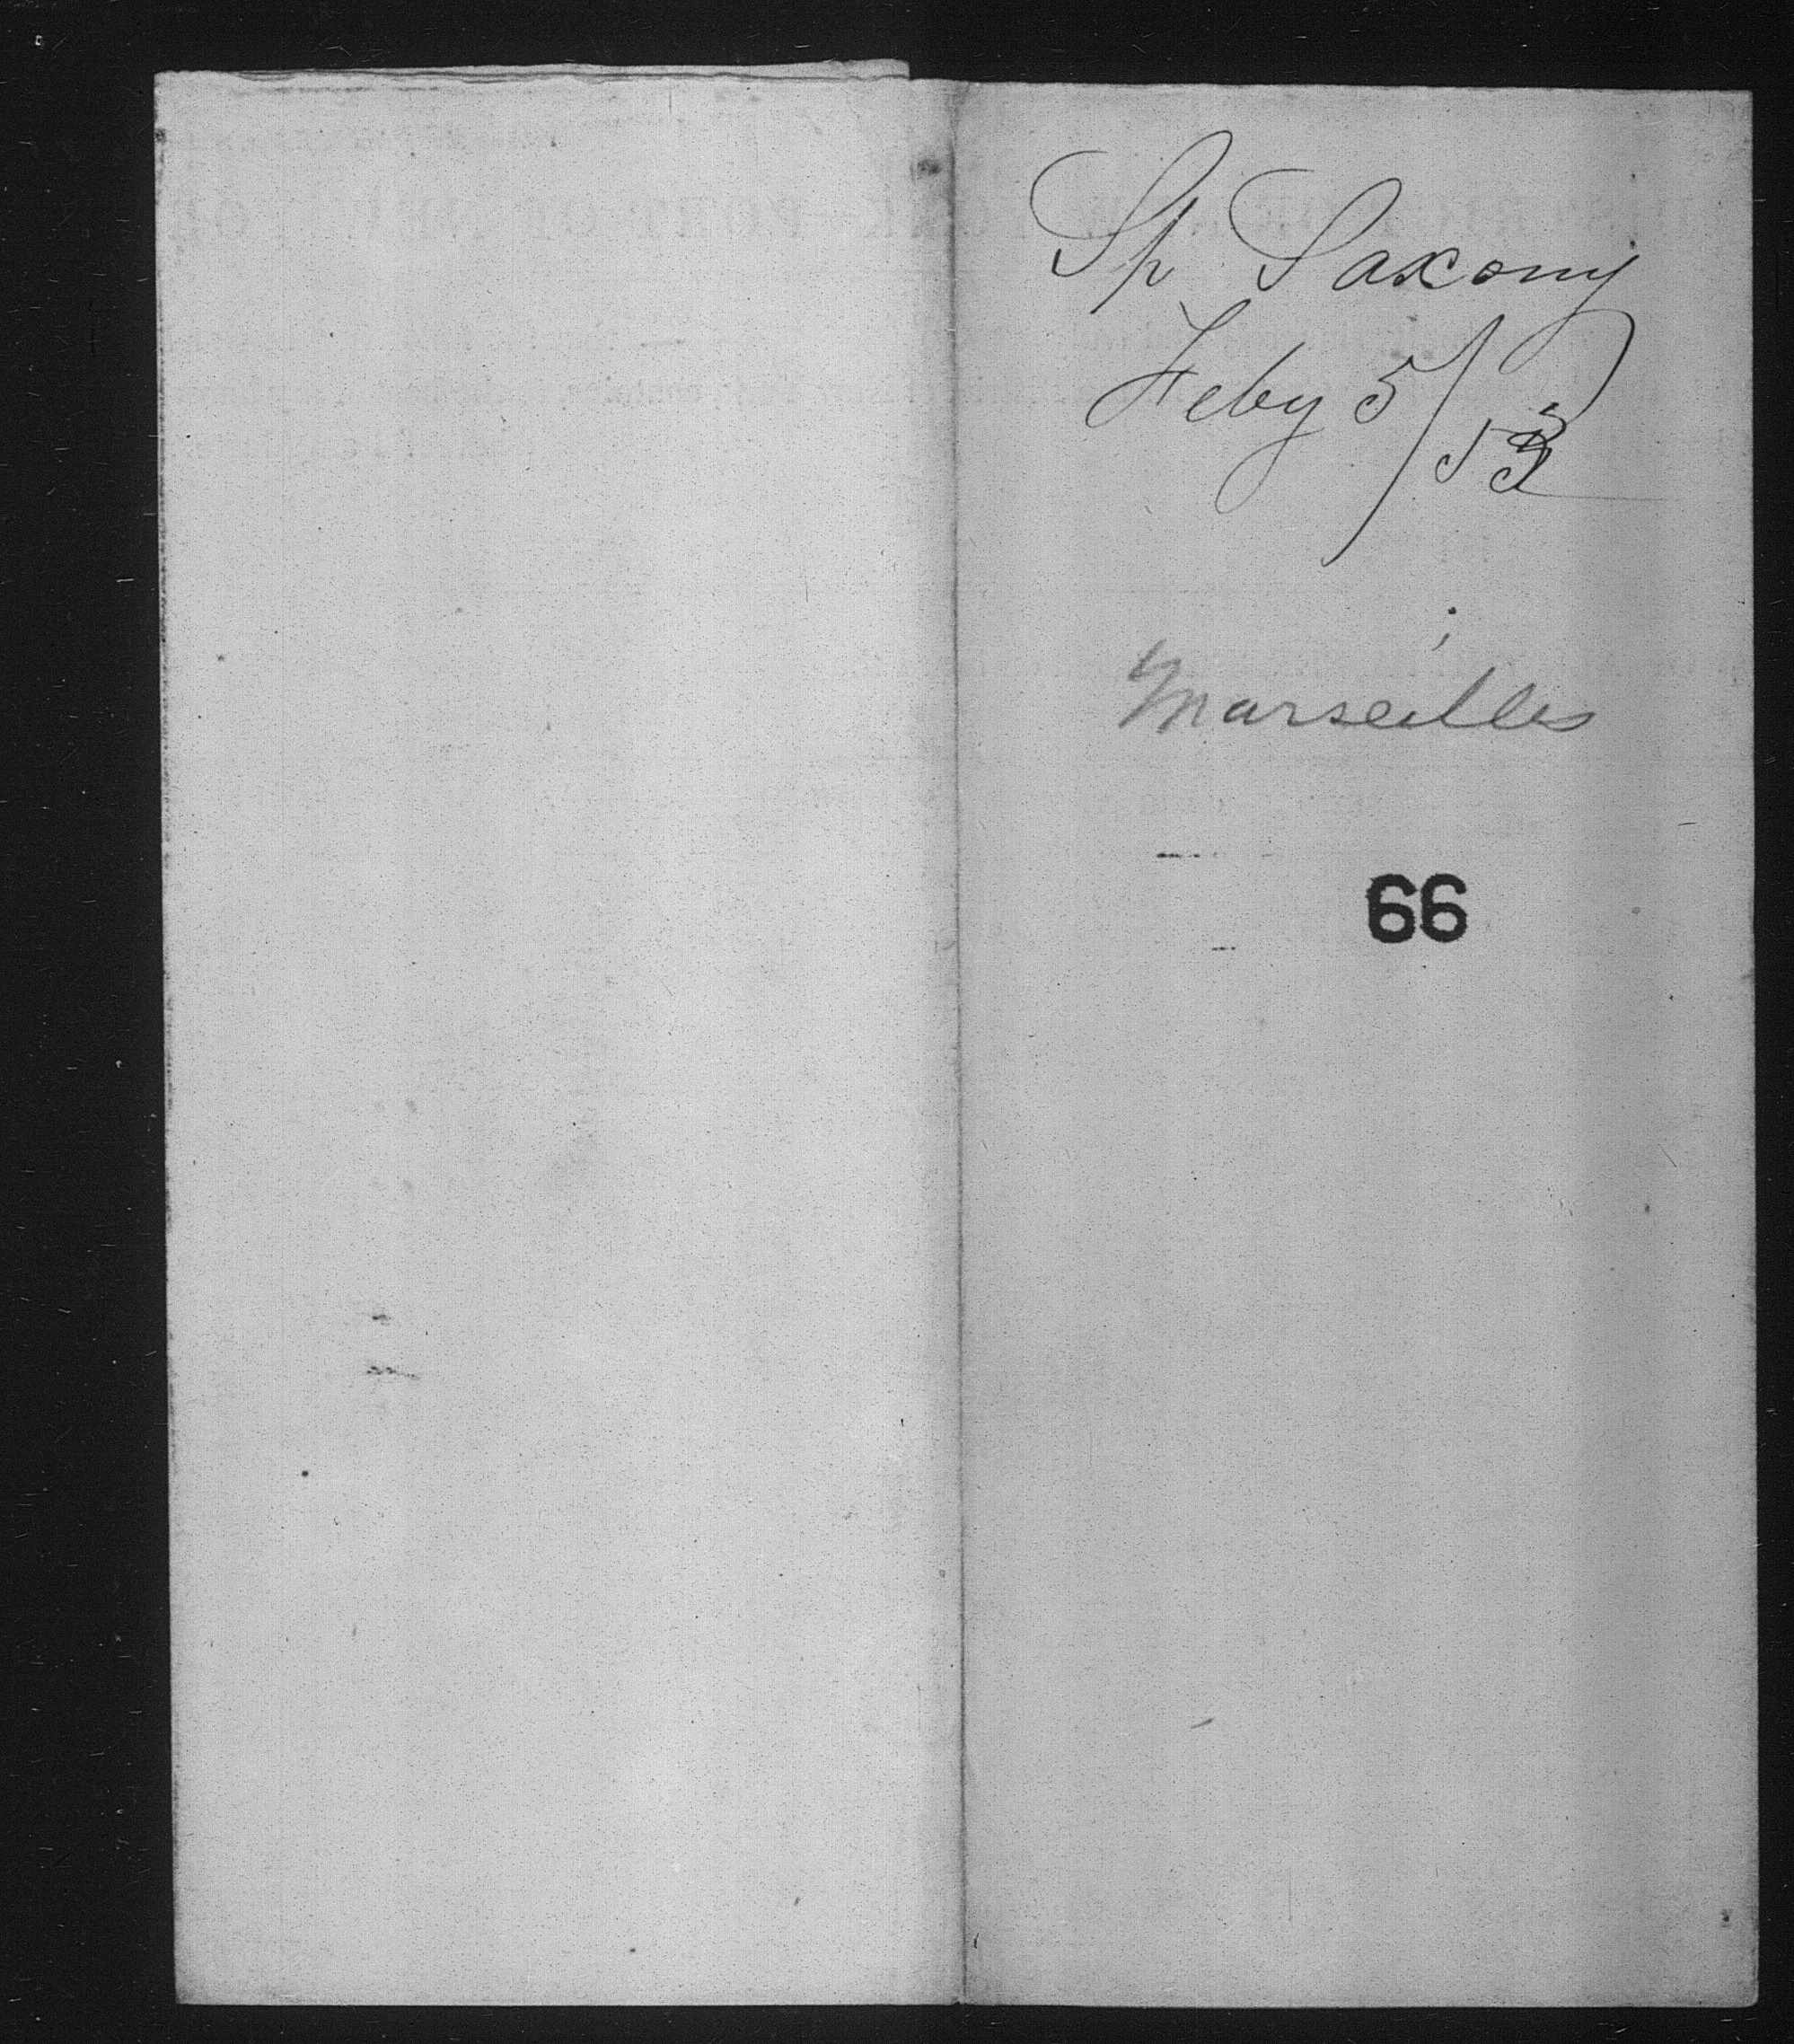 Sp Saxony
Feby 5/53
Marseilles
66